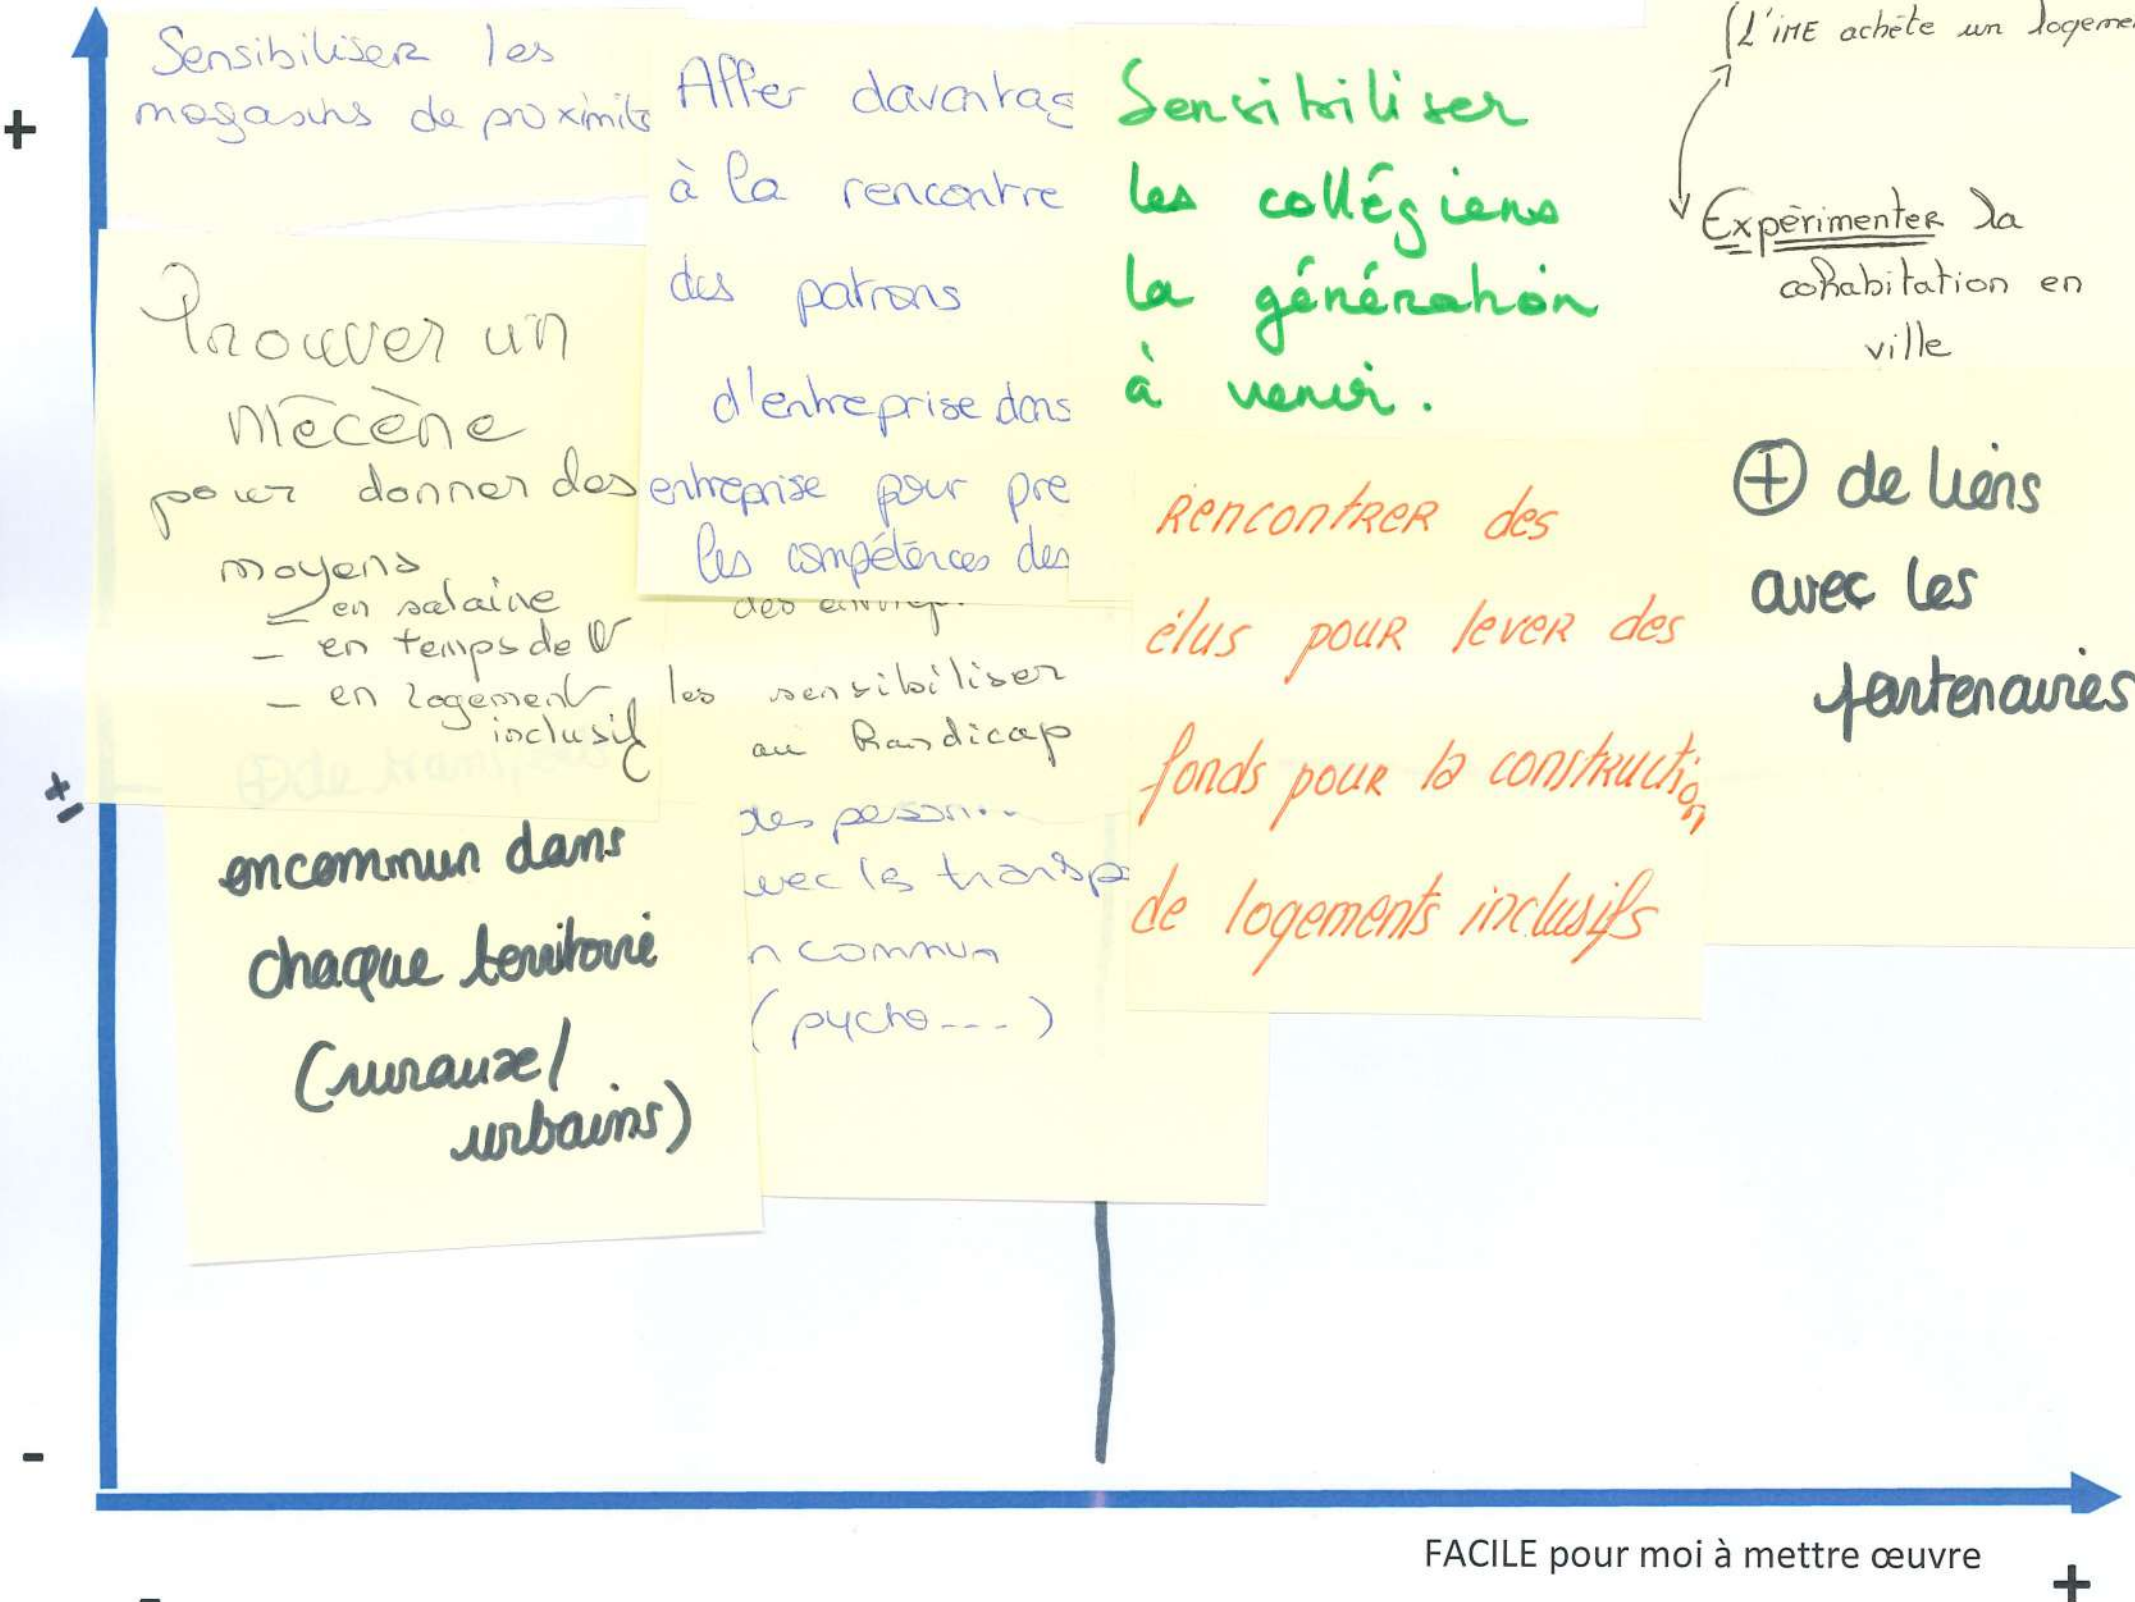 Sensibiliser les
magasins de proximité
Trouver un
mécène
pour donner des
moyens
- en salaire
- en temps de
- en logement
inclusif
encommun dans
chaque territoire
(ruraux/
urbains)
Aller davantag
à la rencontre
des patrons
d'entreprise dans
entreprise pour pre
les compétences des
des
les sensibiliser
au handicap
des person
avec les transp
n commun
(pycho---)
Sensibiliser
les collégiens
la génération
à venir.
Rencontrer des
élus pour lever des
fonds pour la construction
de logements inclusifs
(L'IME achète un logeme
Expérimenter la
cohabitation en
ville
+ de liens
avec les
partenaires
+
+-
-
FACILE pour moi à mettre œuvre
-
+